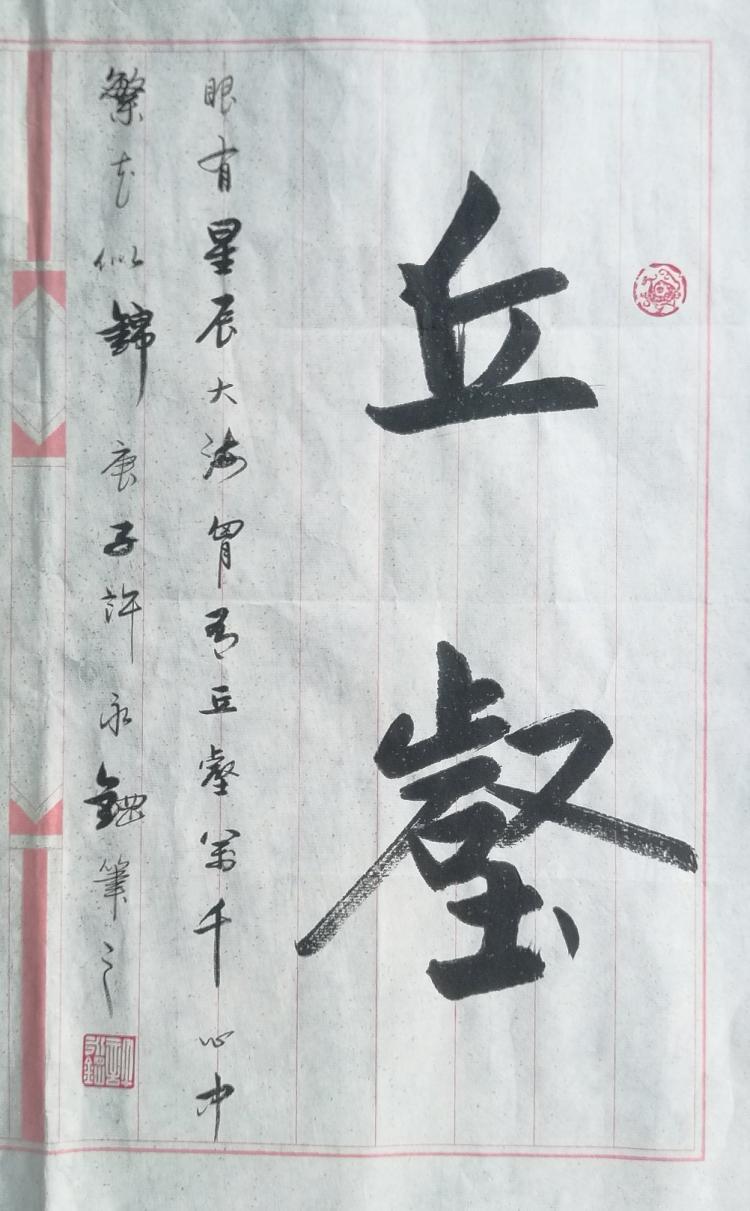 丘壑
眼有星辰大海胷有丘壑萬千心中
繁花似錦 庚子許永筆之